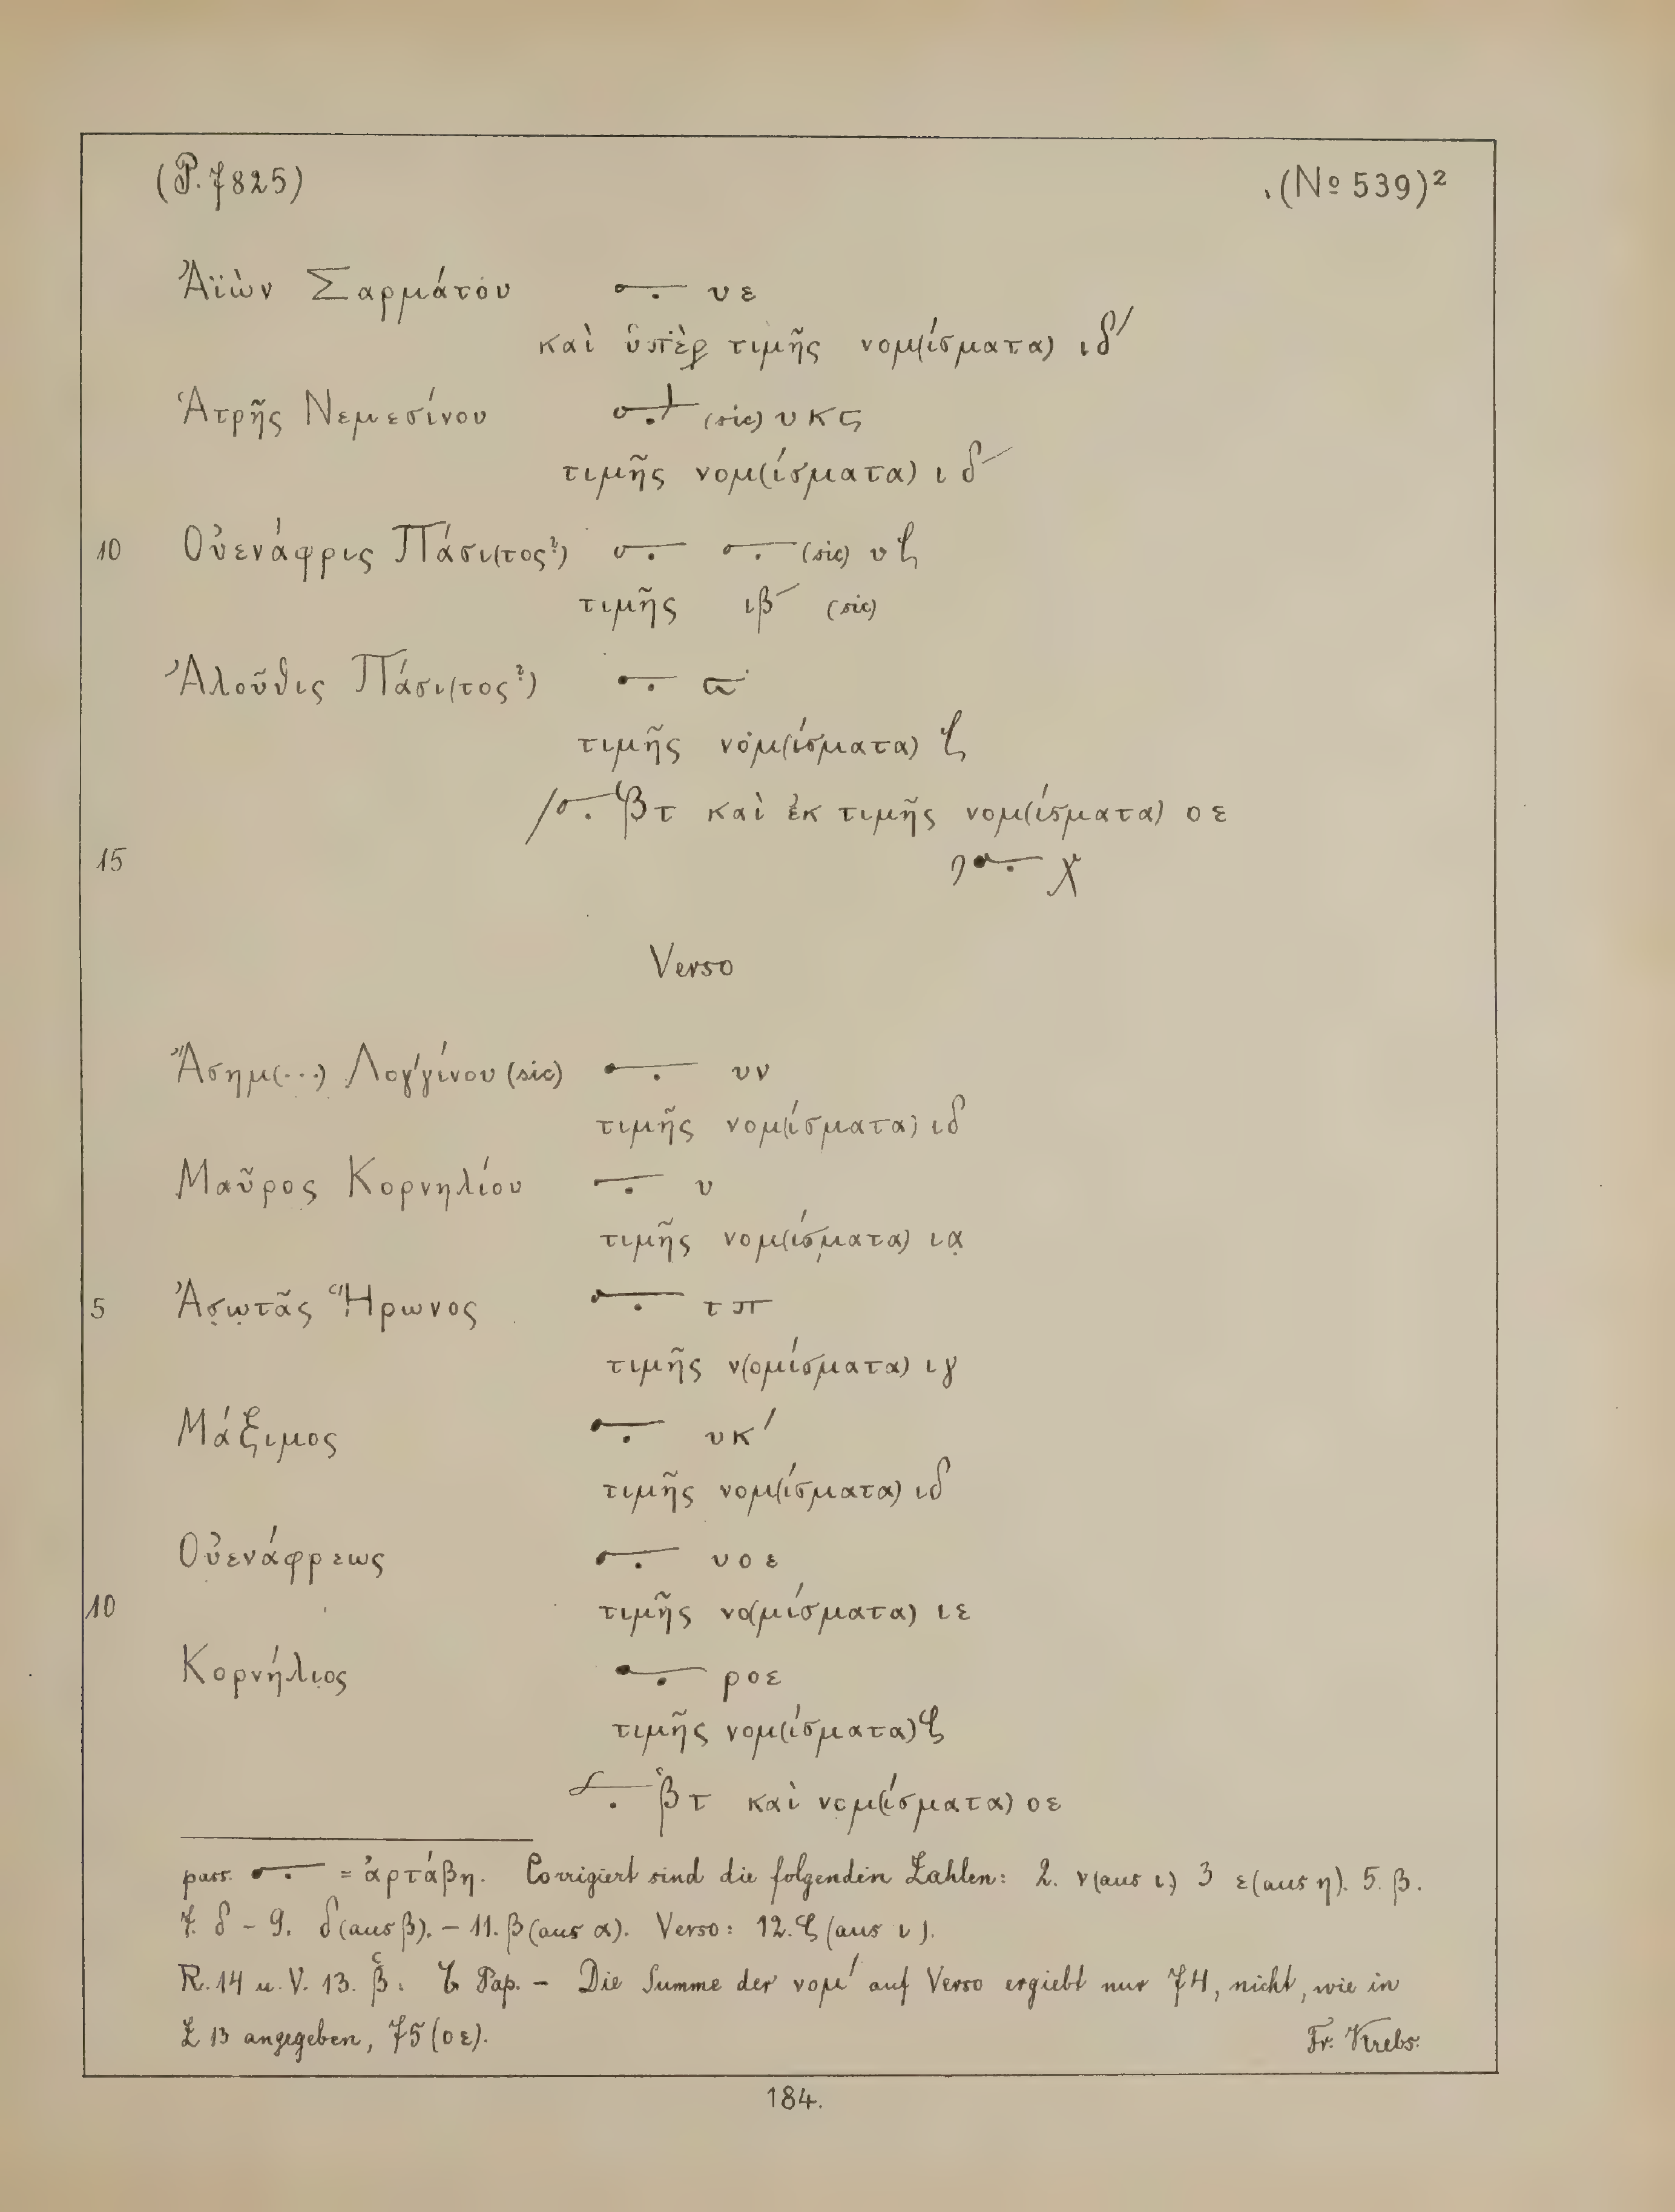 (P. 7825) (No 539)²
Ἀϊὼν Σαρμάτου ⲟ–. υε
καὶ ὑπὲρ τιμῆς νομ(ίσματα) ιδ´
Ἁτρῆς Νεμεσίνου (sic) υκϛ
τιμῆς νομ(ίσματα) ιδ
10 Οὐενάφρις Πάσι(τος?) (sic) υζ
τιμῆς ιβ (sic)
Ἀλοῦθις Πάσι(τος?)
τιμῆς νομ(ίσματα) ζ
/ βτ καὶ ἐκ τιμῆς νομ(ίσματα) οε
15 χ
Verso
Ἄσημ(...) Λογ'γίνου (sic) υν
τιμῆς νομ(ίσματα) ιδ
Μαῦρος Κορνηλίου υ
τιμῆς νομ(ίσματα) ια̣
5 Ἀσ̣ω̣τᾶς Ἥρωνος τπ
τιμῆς ν(ομίσματα) ιγ
Μάξιμος υκ´
τιμῆς νομ(ίσματα) ιδ
Οὐενάφρεως υοε
10 τιμῆς νο(μίσματα) ιε
Κορνήλιος ροε
τιμῆς νομ(ίσματα) ζ
βτ καὶ νομ(ίσματα) οε
pass. = ἀρτάβη. Corrigiert sind die folgenden Zahlen: 2. ν (aus ι) 3 ε (aus η). 5. β.
7. δ – 9. δ (aus β). – 11. β (aus α). Verso: 12. ζ (aus ι).
R. 14 u. V. 13. β: Pap. – Die Summe der νομ´ auf Verso ergiebt nur 74, nicht, wie in
Z 13 angegeben, 75 (οε). Fr. Krebs.
184.